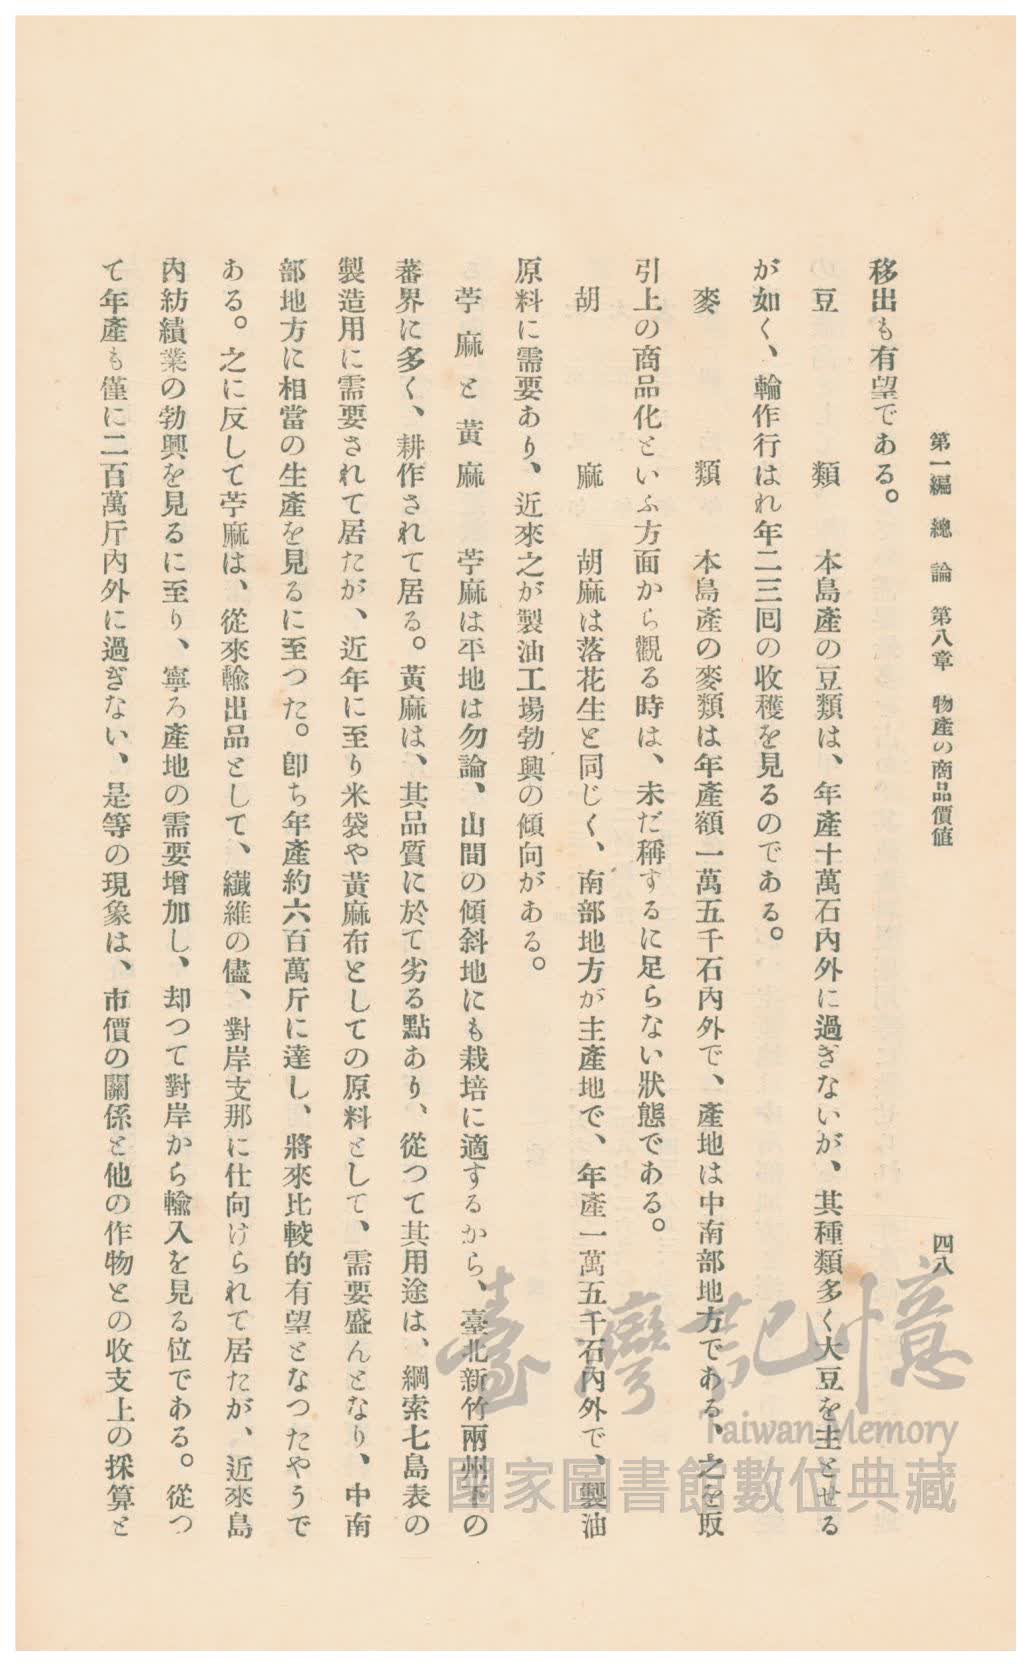 第一編 總論 第八章 物產の商品價値 四八
移出も有望である。
豆類 本島產の豆類は、年產十萬石內外に過ぎないが、其種類多く大豆を主とせる
が如く、輪作行はれ年二三囘の收穫を見るのである。
麥類 本島產の麥類は年產額一萬五千石內外で、產地は中南部地方である、之を取
引上の商品化といふ方面から觀る時は、未だ稱するに足らない狀態である。
胡麻 胡麻は落花生と同じく、南部地方が主產地で、年產一萬五千石內外で、製油
原料に需要あり、近來之が製油工場勃興の傾向がある。
苧麻と黃麻 苧麻は平地は勿論、山間の傾斜地にも栽培に適するから、臺北新竹兩州下の
蕃界に多く、耕作されて居る。黃麻は、其品質に於て劣る點あり、從つて其用途は、綱索七島表の
製造用に需要されて居たが、近年に至り米袋や黃麻布としての原料として、需要盛んとなり、中南
部地方に相當の生產を見るに至つた。卽ち年產約六百萬斤に達し、將來比較的有望となつたやうで
ある。之に反して苧麻は、從來輸出品として、纎維の儘、對岸支那に仕向けられて居たが、近來島
內紡績業の勃興を見るに至り、寧ろ產地の需要增加し、却つて對岸から輸入を見る位である。從つ
て年產も僅に二百萬斤內外に過ぎない、是等の現象は、市價の關係と他の作物との收支上の採算と
臺灣記憶
Taiwan Memory
國家圖書館數位典藏